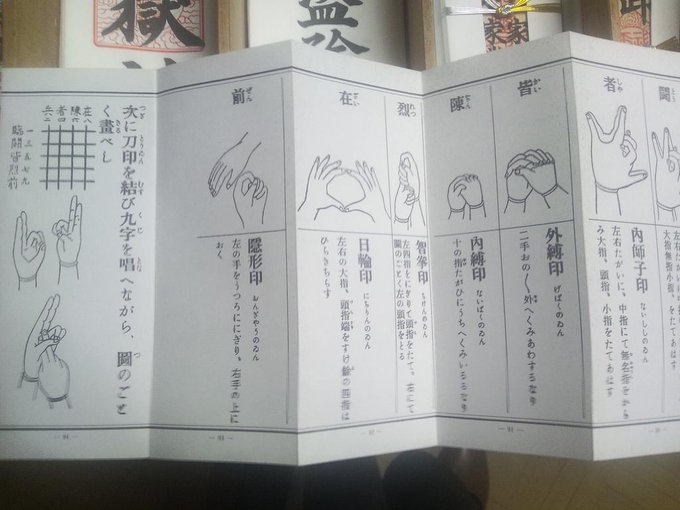 闘
大指無指小指、をたてあはす
者
しや
内師子印 ないししのゐん
左右たがいに、中指にて無名指をから
み大指、頭指、小指をたてあはす
皆
かい
外縛印 げばくのゐん
二手おの〱外へくみあわするなり
陳
ぢん
内縛印 ないばくのゐん
十の指たがひにうちへくみいるゝなり
烈
れつ
智拳印 ちけんのゐん
左四指をにぎりて頭指をたて。右にて
圖のごとく左の頭指をとる
在
ざい
日輪印 にちりんのゐん
左右の大指、頭指端をすけ餘の四指は
ひらきちらす
前
ぜん
隱形印 おんぎやうのゐん
左の手をうつろににぎり。右手の上に
おく
次に刀印を結び九字を唱へながら、圖のごと
く畫べし
在八
陳六
者四
兵二
一三五七九
臨闘皆烈前
— 93 —
— 94 —